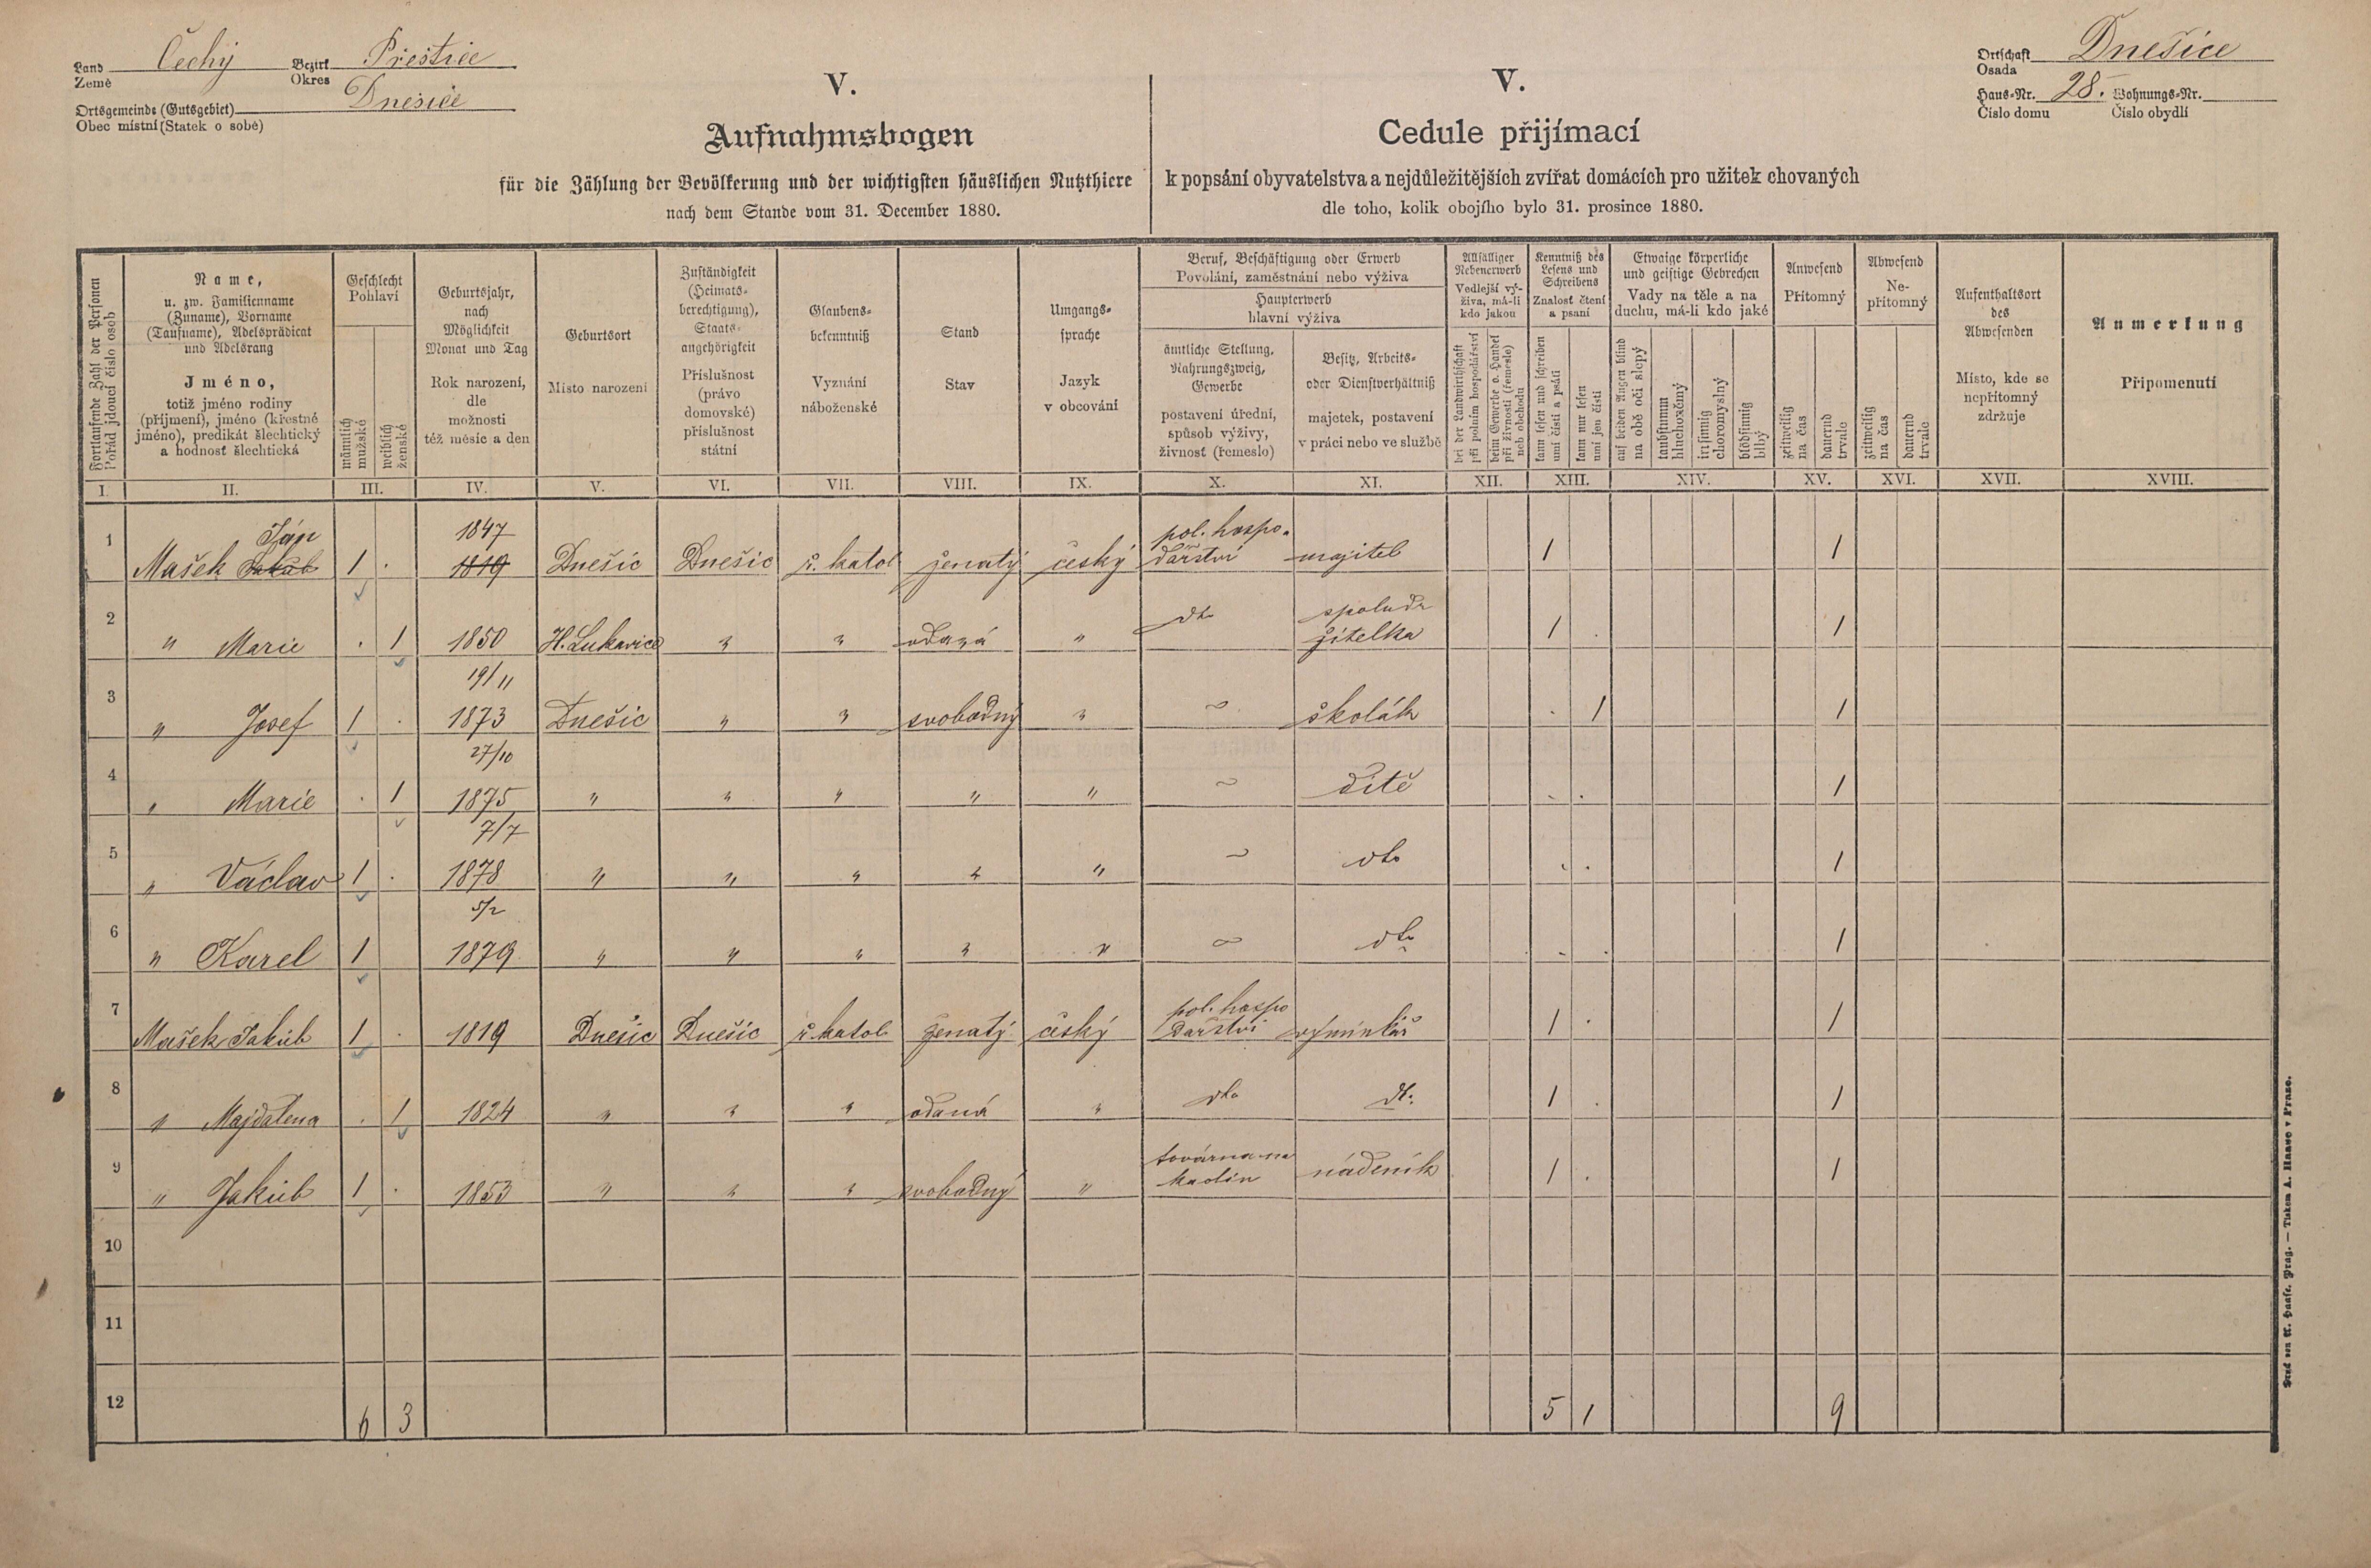 Land Čechy Bezirk Přestice
Země Okres
Ortsgemeinde (Gutsgebiet) Dnešice
Obec místní (Statek o sobě)
V.
Aufnahmsbogen
für die Zählung der Bevölkerung und der wichtigsten häuslichen Nutzthiere
nach dem Stande vom 31. December 1880.
V.
Cedule přijímací
k popsání obyvatelstva a nejdůležitějších zvířat domácích pro užitek chovaných
dle toho, kolik obojího bylo 31. prosince 1880.
Ortschaft Dnešice
Osada
Haus-Nr. 28. Wohnungs-Nr.
Číslo domu Číslo obydlí
Fortlaufende Zahl der Personen
Pořád jdoucí číslo osob
Name,
u. zw. Familienname
(Zuname), Vorname
(Taufname), Adelsprädicat
und Adelsrang
Jméno,
totiž jméno rodiny
(příjmení), jméno (křestné
jméno), predikát šlechtický
a hodnosť šlechtická
Geschlecht
Pohlaví
männlich
mužské
weiblich
ženské
Geburtsjahr,
nach
Möglichkeit
Monat und Tag
Rok narození,
dle
možnosti
též měsíc a den
Geburtsort
Místo narození
Zuständigkeit
(Heimats-
berechtigung),
Staats-
angehörigkeit
Příslušnost
(právo
domovské)
příslušnost
státní
Glaubens-
bekenntniß
Vyznání
náboženské
Stand
Stav
Umgangs-
sprache
Jazyk
v obcování
Beruf, Beschäftigung oder Erwerb
Povolání, zaměstnání nebo výživa
Haupterwerb
hlavní výživa
ämtliche Stellung,
Nahrungszweig,
Gewerbe
postavení úřední,
spůsob výživy,
živnosť (řemeslo)
Besitz, Arbeits-
oder Dienstverhältniß
majetek, postavení
v práci nebo ve službě
Allfälliger
Nebenerwerb
Vedlejší vý-
živa, má-li
kdo jakou
bei der Landwirthschaft
při polním hospodářství
beim Gewerbe o. Handel
při živnosti (řemeslo)
neb obchodu
Kenntniß des
Lesens und
Schreibens
Znalosť čtení
a psaní
kann lesen und schreiben
umí čísti a psáti
kann nur lesen
umí jen čísti
Etwaige körperliche
und geistige Gebrechen
Vady na těle a na
duchu, má-li kdo jaké
auf beiden Augen blind
na obě oči slepý
taubstumm
hluchoněmý
irrsinnig
choromyslný
blödsinnig
blbý
Anwesend
Přítomný
zeitweilig
na čas
dauernd
trvale
Abwesend
Ne-
přítomný
zeitweilig
na čas
dauernd
trvale
Aufenthaltsort
des
Abwesenden
Místo, kde se
nepřítomný
zdržuje
Anmerkung
Připomenutí
I. II. III. IV. V. VI. VII. VIII. IX. X. XI. XII. XIII. XIV. XV. XVI. XVII. XVIII.
Ján 1847 pol. hospo-
1 Mašek Jakub 1 . 1819 Dnešic Dnešic ř. katol ženatý český dářství majitel 1 1
dto spoludr
2 " Marie . 1 1850 H. Lukavice " " odaná " žitelka 1 . 1
19/11
3 " Josef 1 . 1873 Dnešic " " svobodný " ~ školák . 1 1
27/10
4 " Marie . 1 1875 " " " " " ~ dítě . . 1
7/7
5 " Václav 1 . 1878 " " " " " ~ dto . . 1
5/2
6 " Karel 1 1879 " " " " " ~ dto . . 1
pol. hospo
7 Mašek Jakub 1 . 1819 Dnešic Dnešic ř. katol ženatý český dařství výminkář 1 . 1
8 " Majdalena . 1 1824 " " " odaná " dto dt. 1 . 1
továrna na
9 " Jakub 1 . 1853 " " " svobodný " kaolin nádeník 1 . 1
10
11
12 6 3 5 1 9
Druck von A. Haase, Prag. — Tiskem A. Haase v Praze.